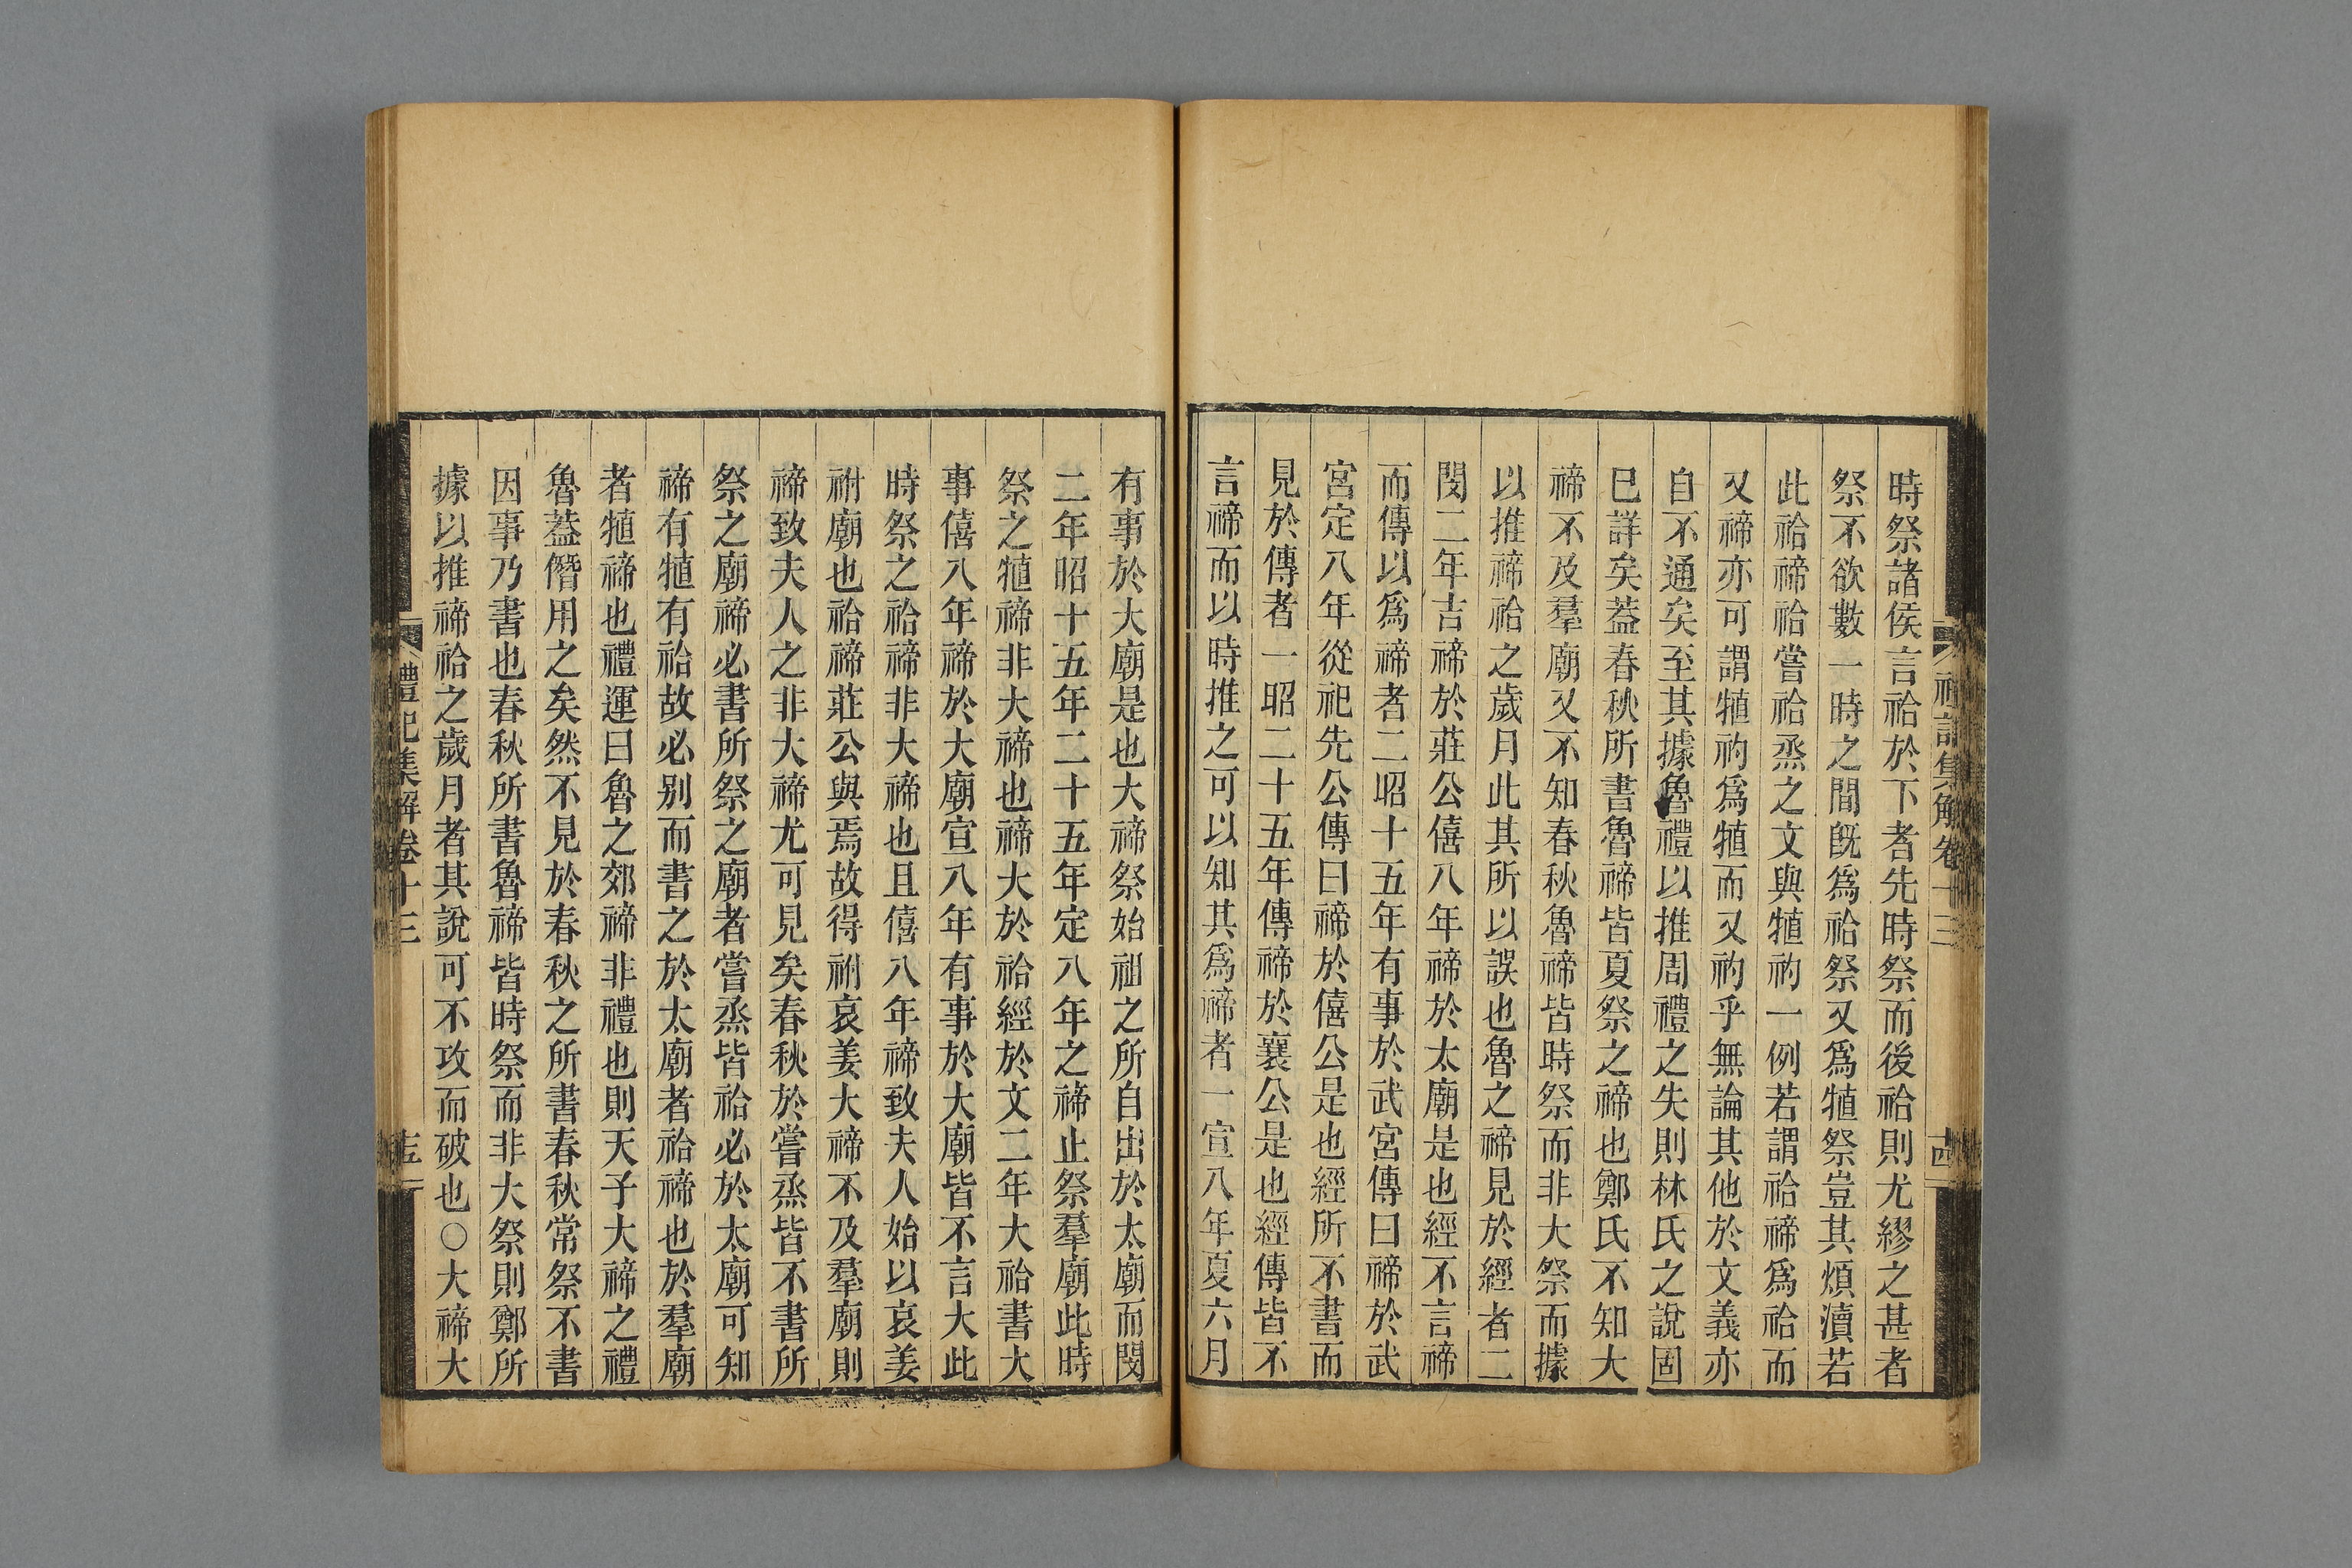 時祭諸侯言祫於下者先時祭而後祫則尤繆之甚者
祭不欲數一時之間旣爲祫祭又爲犆祭豈其煩瀆若
此祫禘祫嘗祫烝之文與犆礿一例若謂祫禘爲祫而
又禘亦可謂犆礿爲犆而又礿乎無論其他於文義亦
自不通矣至其據魯禮以推周禮之失則林氏之說固
巳詳矣蓋春秋所書魯禘皆夏祭之禘也鄭氏不知大
禘不及羣廟又不知春秋魯禘皆時祭而非大祭而據
以推禘祫之歲月此其所以誤也魯之禘見於經者二
閔二年吉禘於莊公僖八年禘於太廟是也經不言禘
而傳以爲禘者二昭十五年有事於武宮傳曰禘於武
宮定八年從祀先公傳曰禘於僖公是也經所不書而
見於傳者一昭二十五年傳禘於襄公是也經傳皆不
言禘而以時推之可以知其爲禘者一宣八年夏六月
禮記集解卷十三
有事於大廟是也大禘祭始祖之所自出於太廟而閔
二年昭十五年二十五年定八年之禘止祭羣廟此時
祭之犆禘非大禘也禘大於祫經於文二年大祫書大
事僖八年禘於大廟宣八年有事於大廟皆不言大此
時祭之祫禘非大禘也且僖八年禘致夫人始以哀姜
祔廟也祫禘莊公與焉故得祔哀姜大禘不及羣廟則
禘致夫人之非大禘尤可見矣春秋於嘗烝皆不書所
祭之廟禘必書所祭之廟者嘗烝皆祫必於太廟可知
禘有犆有祫故必别而書之於太廟者祫禘也於羣廟
者犆禘也禮運曰魯之郊禘非禮也則天子大禘之禮
魯蓋僭用之矣然不見於春秋之所書春秋常祭不書
因事乃書也春秋所書魯禘皆時祭而非大祭則鄭所
據以推禘祫之歲月者其說可不攻而破也○大禘大
禮記集解卷十三